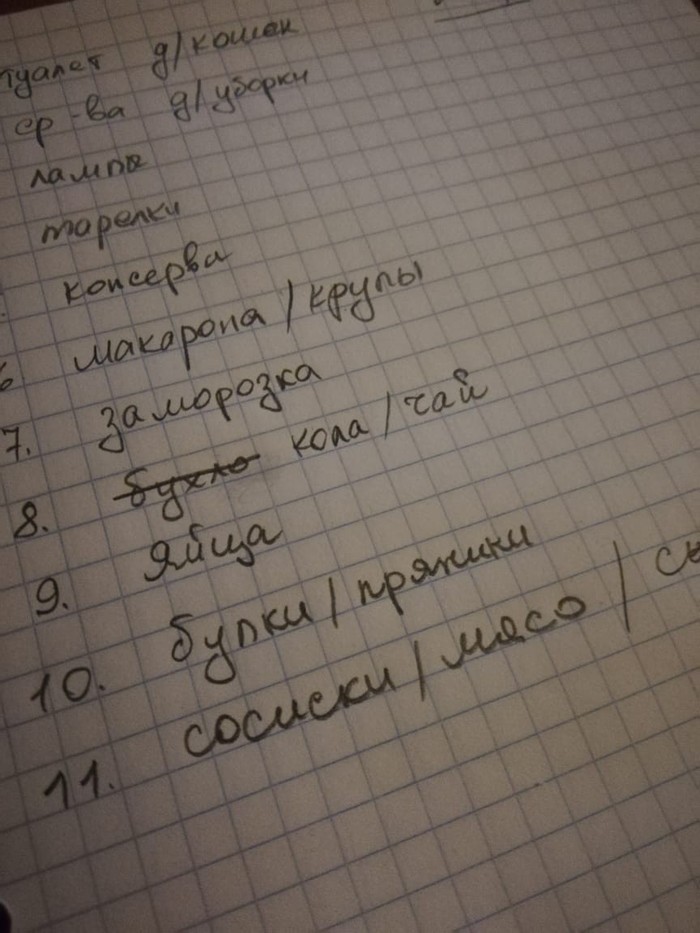 туалет д/кошек
ср-ва д/уборки
лампы
тарелки
консерва
6 макарона/крупы
7. заморозка
8. бухло кола/чай
9. яйца
10. булки/пряники
11. сосиски/мясо/